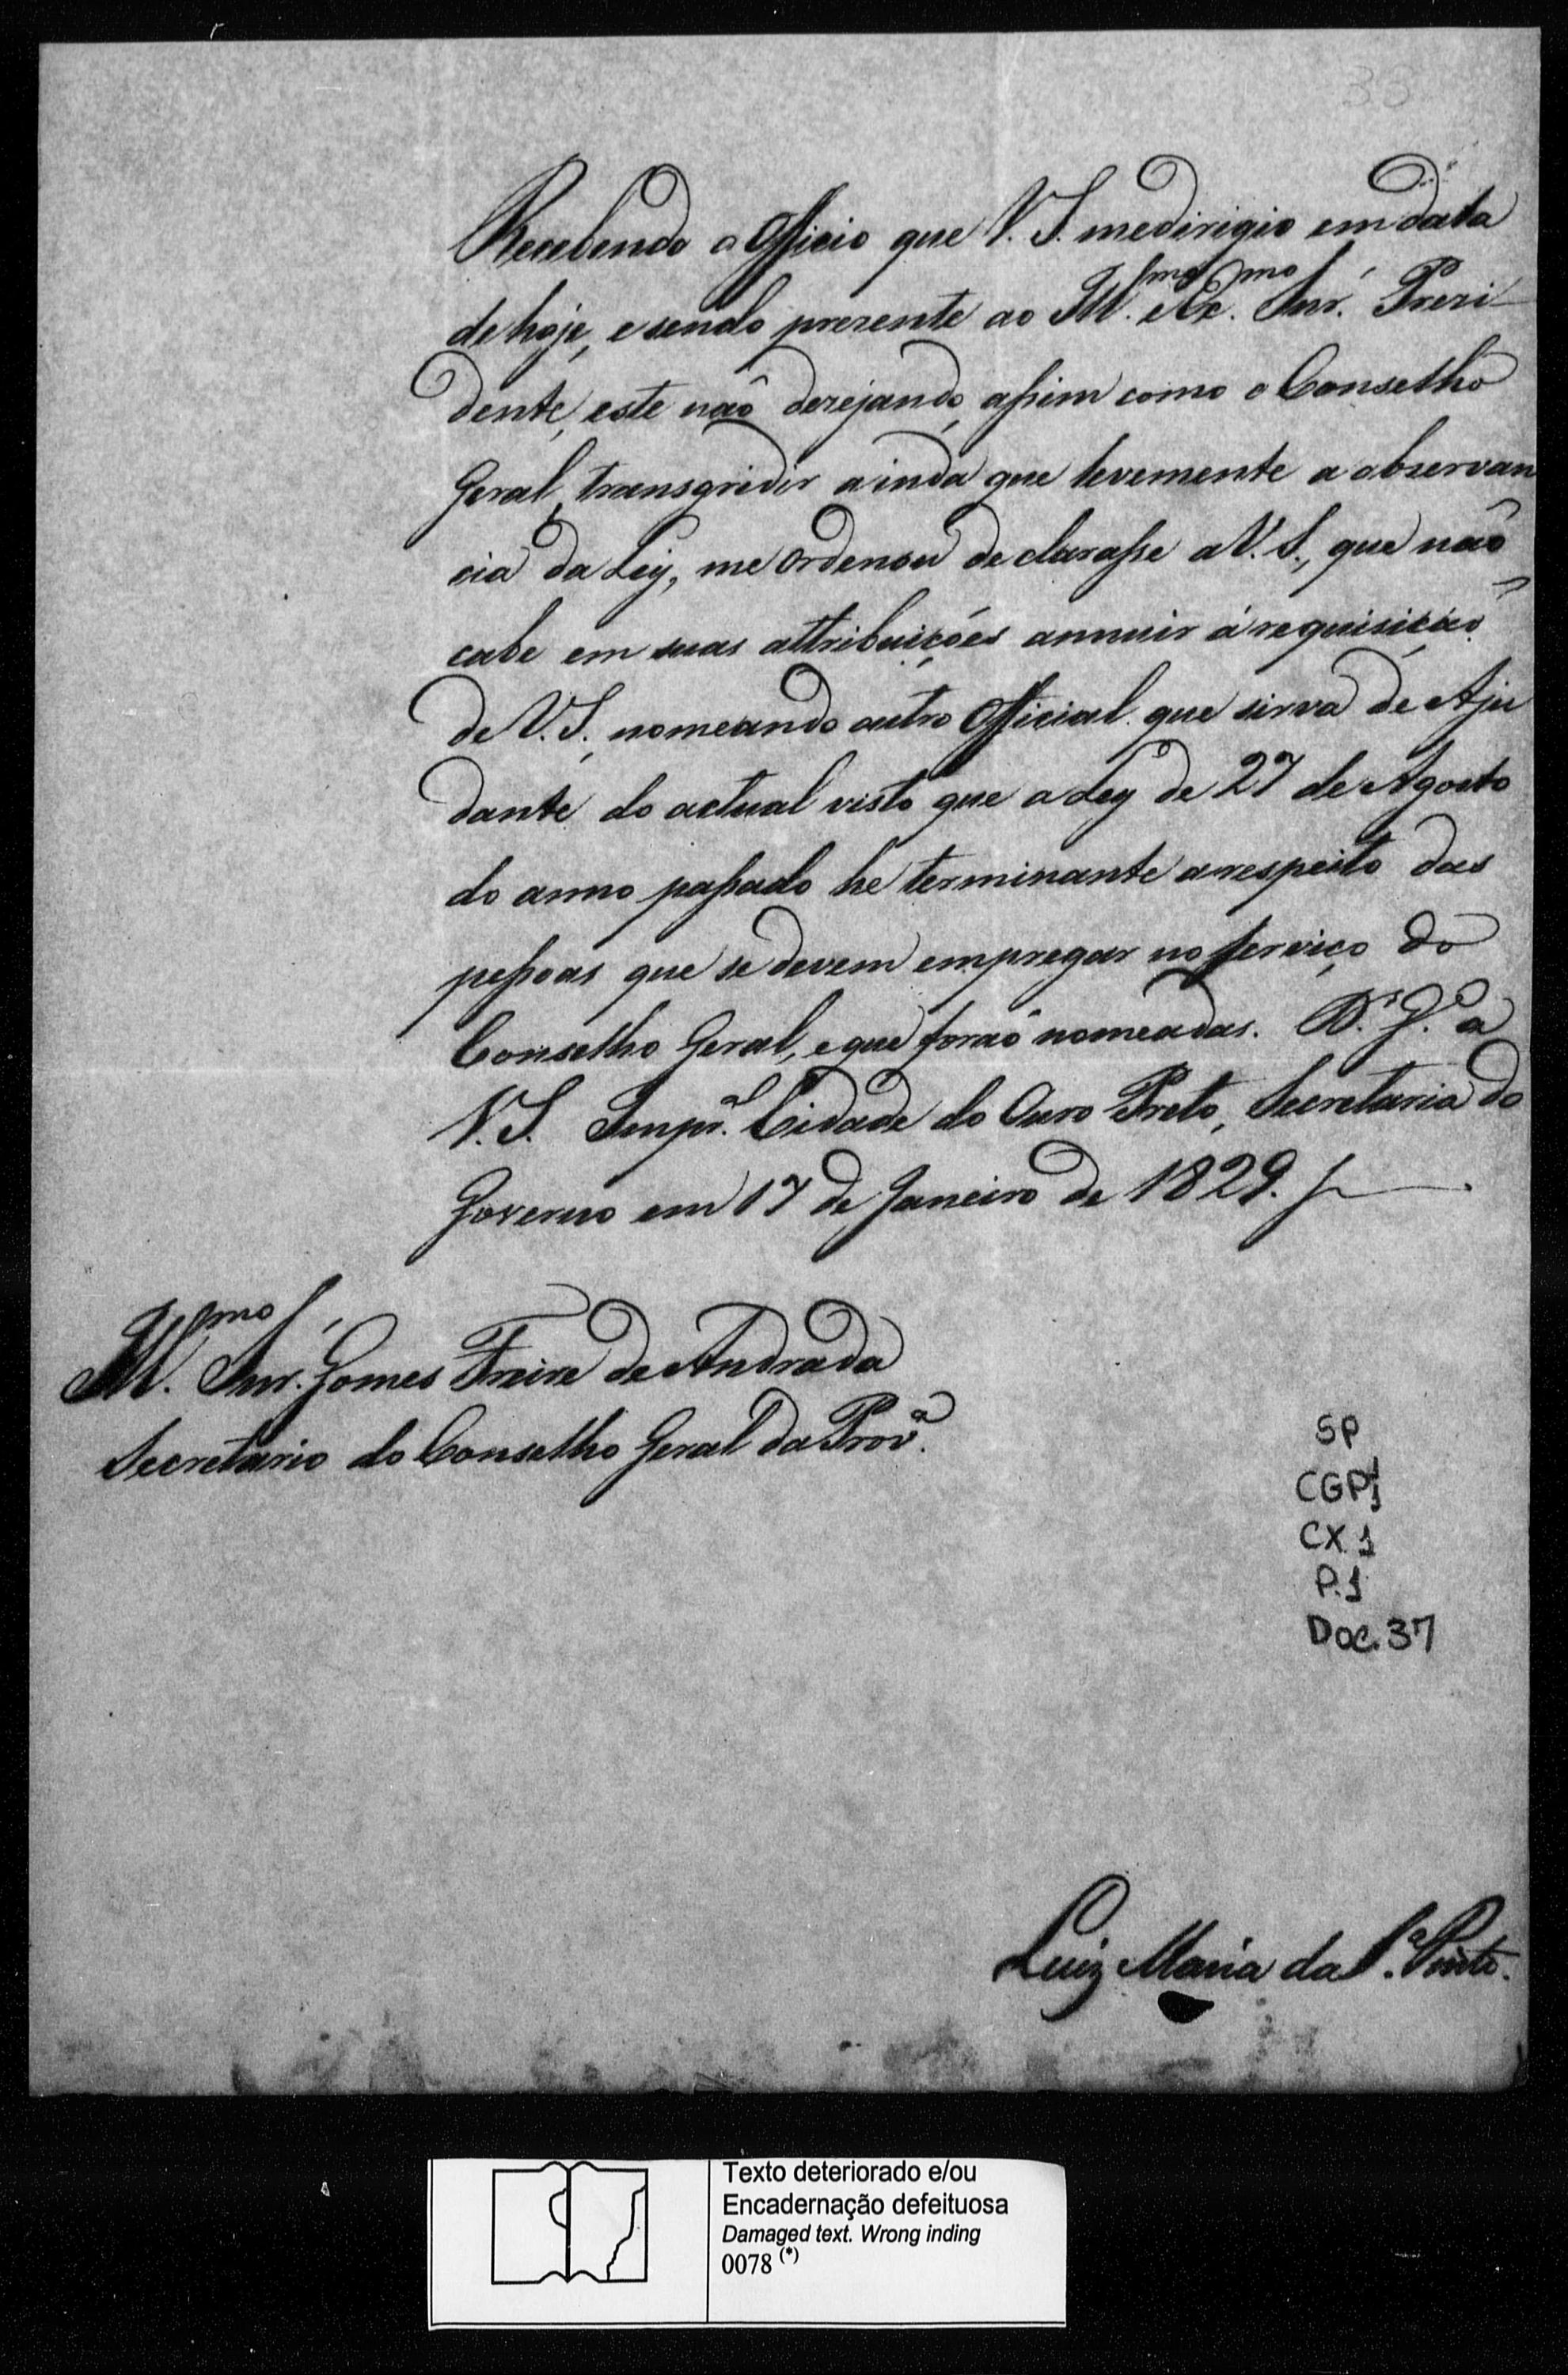 33
Recebendo o Officio que V. S. medirigio em data
de hoje, e sendo prezente ao Ill.mo e Ex.mo Snr. Prezi
dente, este naõ dezejando, assim como o Conselho
Geral, transgredir ainda que levemente a observan
cia da Ley, me Ordenou declarasse a V. S., que naõ
cabe em suas attribuições annuir á requisição
de V. S., nomeando outro Official que sirva de Aju
dante do actual visto que a Ley de 27 de Agosto
do anno passado he terminante arespeito das
pessoas que se devem empregar no serviço do
Conselho Geral, e que foraõ nomeadas. D.s G.e a
V. S. Imper.al Cidade do Ouro Preto, Secretaria do
Governo em 17 de Janeiro de 1829.
Ill.mo Snr. Gomes Freire de Andrada
Secretario do Conselho Geral da Prov.a
SP
CGP1
CX.1
P.1
Doc. 37
Luiz Maria da S.a Pinto.
Texto deteriorado e/ou
Encadernação defeituosa
Damaged text. Wrong inding
0078 (*)